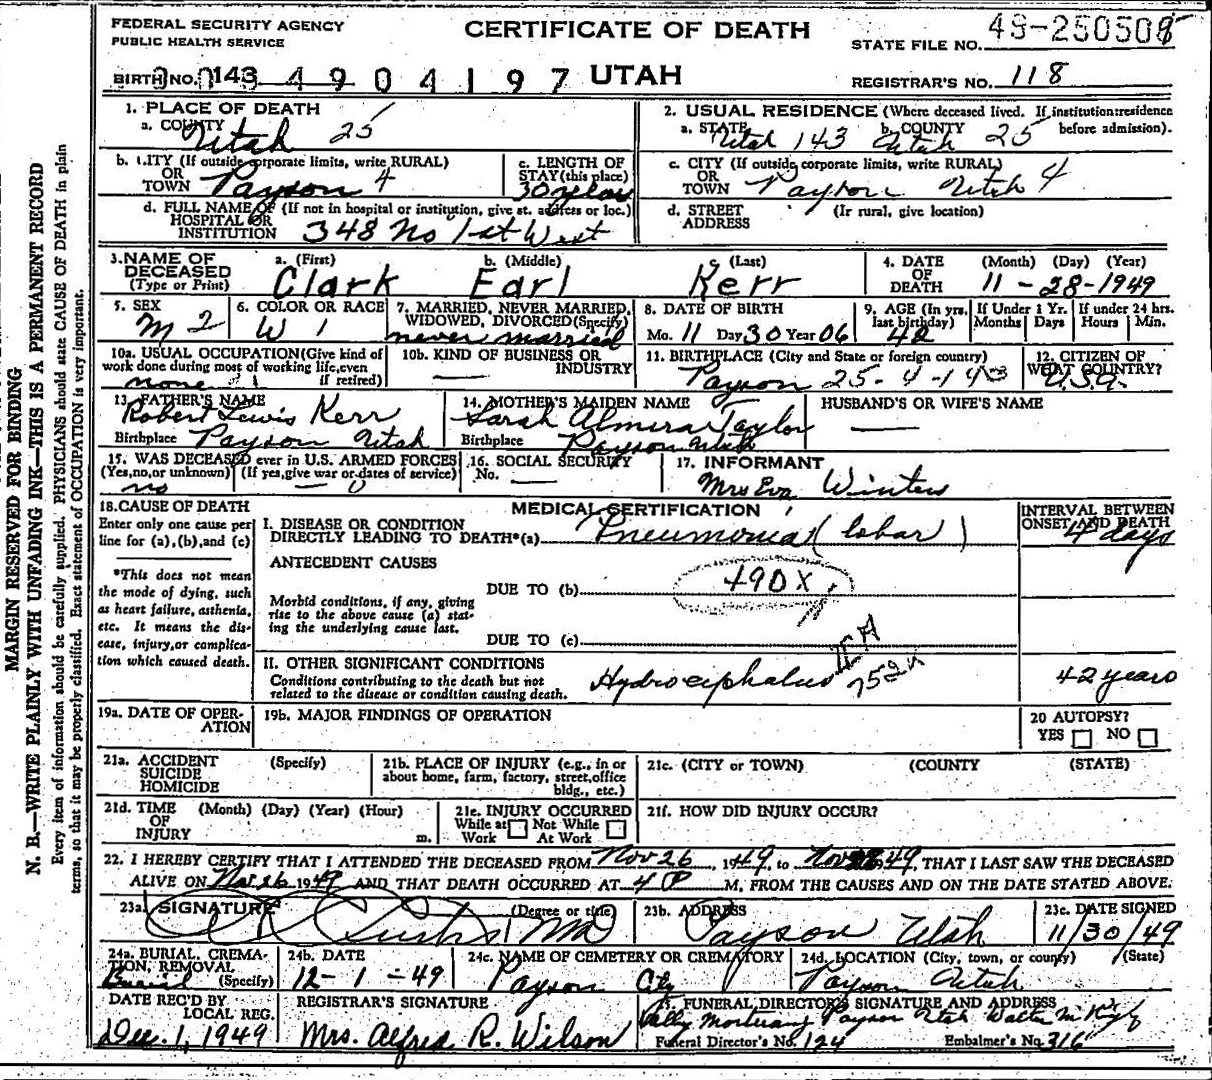 FEDERAL SECURITY AGENCY
PUBLIC HEALTH SERVICE
CERTIFICATE OF DEATH
STATE FILE NO. 49-250508
BIRTH NO. 143 4904197 UTAH
REGISTRAR'S NO. 118
1. PLACE OF DEATH
a. COUNTY Utah 25
2. USUAL RESIDENCE (Where deceased lived. If institution: residence before admission).
a. STATE Utah 143 b. COUNTY Utah 25
b. CITY (If outside corporate limits, write RURAL) OR TOWN Payson 4
c. LENGTH OF STAY (this place) 30 years
c. CITY (If outside corporate limits, write RURAL) OR TOWN Payson Utah 4
d. FULL NAME OF (If not in hospital or institution, give st. address or loc.) HOSPITAL OR INSTITUTION 348 No 1st West
d. STREET ADDRESS (If rural, give location)
3. NAME OF DECEASED (Type or Print)
a. (First) Clark b. (Middle) Earl c. (Last) Kerr
4. DATE OF DEATH (Month) (Day) (Year) 11-28-1949
5. SEX M 2
6. COLOR OR RACE W 1
7. MARRIED, NEVER MARRIED, WIDOWED, DIVORCED (Specify) never married
8. DATE OF BIRTH Mo. 11 Day 30 Year 06
9. AGE (In yrs. last birthday) 42
If Under 1 Yr. Months Days
If under 24 hrs. Hours Min.
10a. USUAL OCCUPATION (Give kind of work done during most of working life, even if retired) none
10b. KIND OF BUSINESS OR INDUSTRY —
11. BIRTHPLACE (City and State or foreign country) Payson 25-4-143
12. CITIZEN OF WHAT COUNTRY? U.S.A.
13. FATHER'S NAME Robert Lewis Kerr
Birthplace Payson Utah
14. MOTHER'S MAIDEN NAME Sarah Almira Taylor
Birthplace Payson Utah
HUSBAND'S OR WIFE'S NAME —
15. WAS DECEASED ever in U.S. ARMED FORCES (Yes, no, or unknown) (If yes, give war or dates of service) no — 0
16. SOCIAL SECURITY No. —
17. INFORMANT Mrs Eva Winters
MEDICAL CERTIFICATION
INTERVAL BETWEEN ONSET AND DEATH
18. CAUSE OF DEATH
Enter only one cause per line for (a), (b), and (c)
*This does not mean the mode of dying, such as heart failure, asthenia, etc. It means the disease, injury, or complication which caused death.
I. DISEASE OR CONDITION DIRECTLY LEADING TO DEATH*(a) Pneumonia (lobar) 4 days
ANTECEDENT CAUSES
DUE TO (b) 490X
Morbid conditions, if any, giving rise to the above cause (a) stating the underlying cause last.
DUE TO (c)
II. OTHER SIGNIFICANT CONDITIONS
Conditions contributing to the death but not related to the disease or condition causing death.
Hydrocephalus 752X 42 years
19a. DATE OF OPERATION
19b. MAJOR FINDINGS OF OPERATION
20 AUTOPSY? YES NO
21a. ACCIDENT SUICIDE HOMICIDE (Specify)
21b. PLACE OF INJURY (e.g., in or about home, farm, factory, street, office bldg., etc.)
21c. (CITY or TOWN) (COUNTY) (STATE)
21d. TIME OF INJURY (Month) (Day) (Year) (Hour) m.
21e. INJURY OCCURRED While at Work Not While At Work
21f. HOW DID INJURY OCCUR?
22. I HEREBY CERTIFY THAT I ATTENDED THE DECEASED FROM Nov 26, 1949, to Nov 28, 1949, THAT I LAST SAW THE DECEASED
ALIVE ON Nov 26 1949 AND THAT DEATH OCCURRED AT 4 P M., FROM THE CAUSES AND ON THE DATE STATED ABOVE.
23a. SIGNATURE Curtis (Degree or title) MD
23b. ADDRESS Payson Utah
23c. DATE SIGNED 11/30/49
24a. BURIAL, CREMATION, REMOVAL (Specify) Burial
24b. DATE 12-1-49
24c. NAME OF CEMETERY OR CREMATORY Payson City
24d. LOCATION (City, town, or county) (State) Payson Utah
DATE REC'D BY LOCAL REG. Dec. 1, 1949
REGISTRAR'S SIGNATURE Mrs. Alfred R. Wilson
25. FUNERAL DIRECTOR'S SIGNATURE AND ADDRESS
Valley Mortuary Payson Utah Walter M
Funeral Director's No. 124 Embalmer's No. 316
MARGIN RESERVED FOR BINDING
N. B.—WRITE PLAINLY WITH UNFADING INK—THIS IS A PERMANENT RECORD
Every item of information should be carefully supplied. PHYSICIANS should state CAUSE OF DEATH in plain
terms, so that it may be properly classified. Exact statement of OCCUPATION is very important.